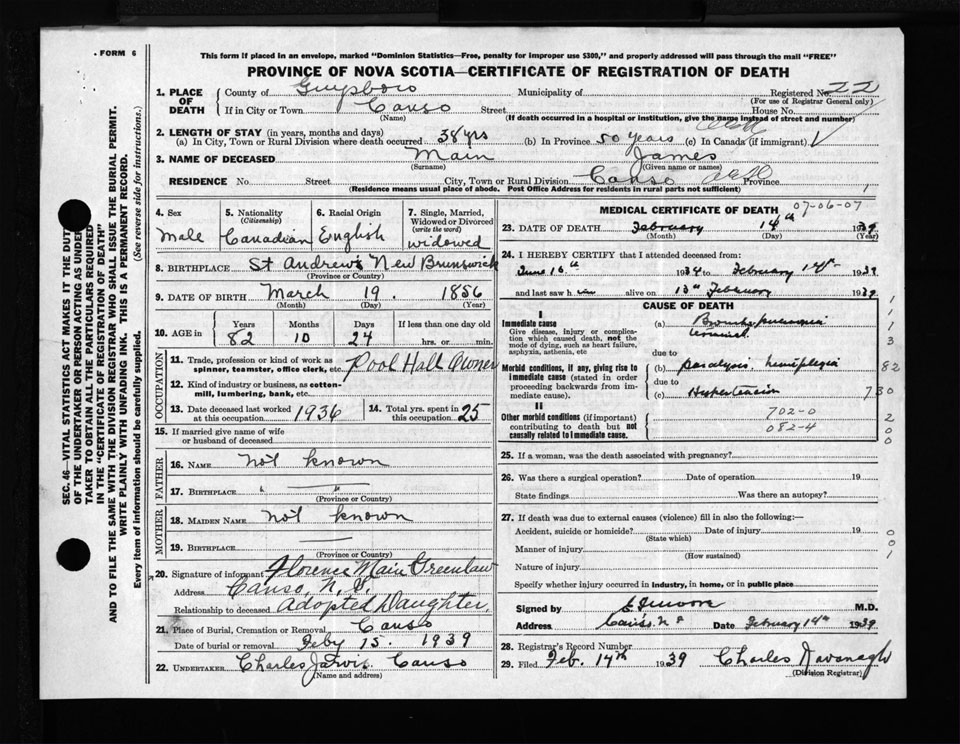 . FORM 6
This form if placed in an envelope, marked "Dominion Statistics—Free, penalty for improper use $300," and properly addressed will pass through the mail "FREE"
PROVINCE OF NOVA SCOTIA—CERTIFICATE OF REGISTRATION OF DEATH
1. PLACE OF DEATH
County of Guysboro Municipality of Registered No. 22
(For use of Registrar General only)
If in City or Town Canso Street House No.
(Name) (If death occurred in a hospital or institution, give the name instead of street and number)
2. LENGTH OF STAY (in years, months and days)
(a) In City, Town or Rural Division where death occurred 38 yrs (b) In Province 50 years (c) In Canada (if immigrant)
3. NAME OF DECEASED Main James
(Surname) (Given name or names)
RESIDENCE No. Street City, Town or Rural Division Canso Province
(Residence means usual place of abode. Post Office Address for residents in rural parts not sufficient) 1
4. Sex Male
5. Nationality (Citizenship) Canadian
6. Racial Origin English
7. Single, Married, Widowed or Divorced (write the word) widowed
8. BIRTHPLACE St Andrews New Brunswick
(Province or Country)
9. DATE OF BIRTH March 19. 1856
(Month) (Day) (Year)
10. AGE in Years 82 Months 10 Days 24 If less than one day old hrs. or min.
OCCUPATION
11. Trade, profession or kind of work as spinner, teamster, office clerk, etc. Pool Hall Owner
12. Kind of industry or business, as cotton-mill, lumbering, bank, etc.
13. Date deceased last worked at this occupation 1936
14. Total yrs. spent in this occupation 25
15. If married give name of wife or husband of deceased
FATHER
16. NAME not known
17. BIRTHPLACE " "
(Province or Country)
MOTHER
18. MAIDEN NAME not known
19. BIRTHPLACE
(Province or Country)
20. Signature of informant Florence Main Greenlaw
Address Canso, N.S.
Relationship to deceased Adopted Daughter,
21. Place of Burial, Cremation or Removal Canso
Date of burial or removal Feby 15. 1939
22. UNDERTAKER Charles Jarvis. Canso
(Name and address)
MEDICAL CERTIFICATE OF DEATH 07-06-07
23. DATE OF DEATH February 14th 1939
(Month) (Day) (Year)
24. I HEREBY CERTIFY that I attended deceased from:
June 16th 1934 to February 14th 1939
and last saw h im alive on 13th February 1939
CAUSE OF DEATH
I
Immediate cause
Give disease, injury or complication which caused death, not the mode of dying, such as heart failure, asphyxia, asthenia, etc
(a) Broncho pneumonia
terminal.
due to
Morbid conditions, if any, giving rise to immediate cause (stated in order proceeding backwards from immediate cause).
(b) paralysis, hemiplegia
due to
(c) Hypertension
II
Other morbid conditions (if important) contributing to death but not causally related to immediate cause.
702-0
082-4
1
1
1
3
82
730
2
0
0
25. If a woman, was the death associated with pregnancy?
26. Was there a surgical operation? Date of operation 19
State findings Was there an autopsy?
27. If death was due to external causes (violence) fill in also the following:—
Accident, suicide or homicide? Date of injury 19
(State which)
Manner of injury
(How sustained)
Nature of injury
Specify whether injury occurred in industry, in home, or in public place
0
0
1
Signed by M.D.
Address Canso. N S Date February 14th 1939
28. Registrar's Record Number
29. Filed Feb. 14th 1939 Charles Kavanagh
(Division Registrar)
SEC. 46—VITAL STATISTICS ACT MAKES IT THE DUTY
OF THE UNDERTAKER OR PERSON ACTING AS UNDER-
TAKER TO OBTAIN ALL THE PARTICULARS REQUIRED
IN THE "CERTIFICATE OF REGISTRATION OF DEATH"
AND TO FILE THE SAME WITH THE DIVISION REGISTRAR WHO SHALL ISSUE THE BURIAL PERMIT.
WRITE PLAINLY WITH UNFADING INK. THIS IS A PERMANENT RECORD.
Every item of information should be carefully supplied. (See reverse side for instructions.)